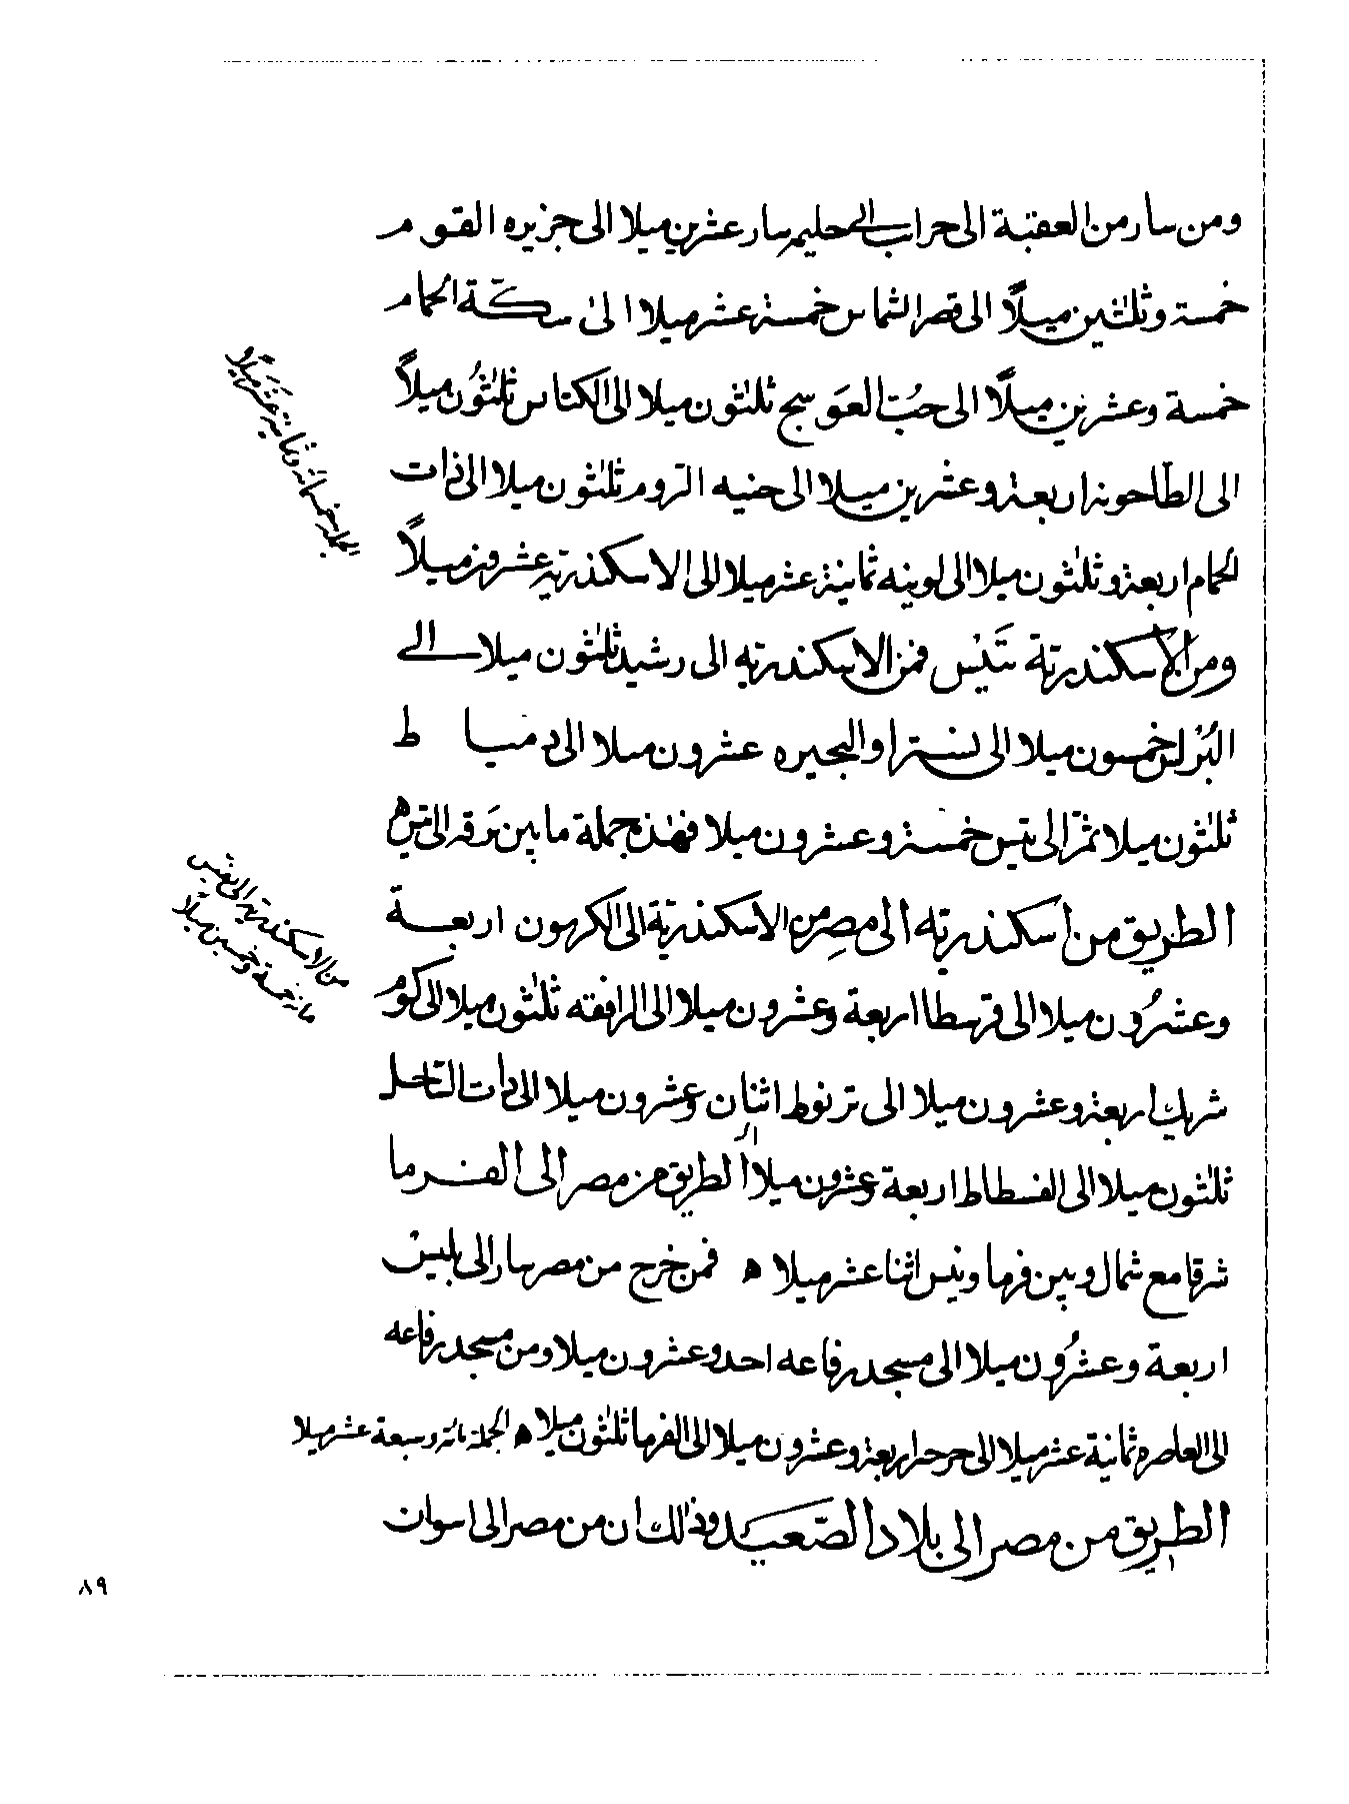 ومن سار من العقبة الى خراب ابى حليمه سار عشرين ميلا الى جزيره القوم
خمسة وثلثين ميلًا الى قصر الشماس خمسة عشر ميلا الى سكّة الحمام
خمسة وعشرين ميلًا الى جُبّ العَوسج ثلثون ميلا الى الكنائس ثلثُون ميلاً
الى الطاحونة اربعة وعشرين ميلا الى حنيه الروم ثلثون ميلا الى ذات
الحمام اربعة وثلثون ميلا الى لوبينه ثمانية عشر ميلا الى الاسكندرية عشرون ميلاً
ومن الاسكندرية تنيس فمن الاسكندريه الى رشيد ثلثون ميلا الى
البُرلس خمسون ميلا الى نسترا والبحيره عشرون ميلا الى دمياط
ثلثون ميلا ثمّ الى تنيس خمسة وعشرون ميلا فهذه جملة ما بين برقه الى تنيس ه
الطريق من اسكندريه الى مصر من الاسكندرية الى الكريون اربعة
وعشرُون ميلا الى قرسطا اربعة وعشرون ميلا الى الرافقه ثلثون ميلا الى كوم
شريك اربعة وعشرون ميلا الى ترنوط اثنان وعشرون ميلا الى ذات الساحل
ثلثون ميلا الى الفسطاط اربعة وعشرون ميلا الطريق من مصر الى الفرما
شرقا مع شمال وبين فرما وتنيس اثنا عشر ميلا ه فمن خرج من مصر سار الى بلبيس
اربعة وعشرُون ميلا الى مسجد رفاعه احد وعشرون ميلا ومن مسجد رفاعه
الى العاصره ثمانية عشر ميلا الى جرجير اربعة وعشرون ميلا الى الفرما ثلثون ميلا ه الجملة مائة وسبعة عشر ميلا
الطريق من مصر الى بلاد الصّعيد وذلك ان من مصر الى اسوان
الجملة خمسمائة وثمانية عشر ميلًا
من الاسكندرية الى تنيس
مائة خمسة وخمسين ميلًا
٨٩